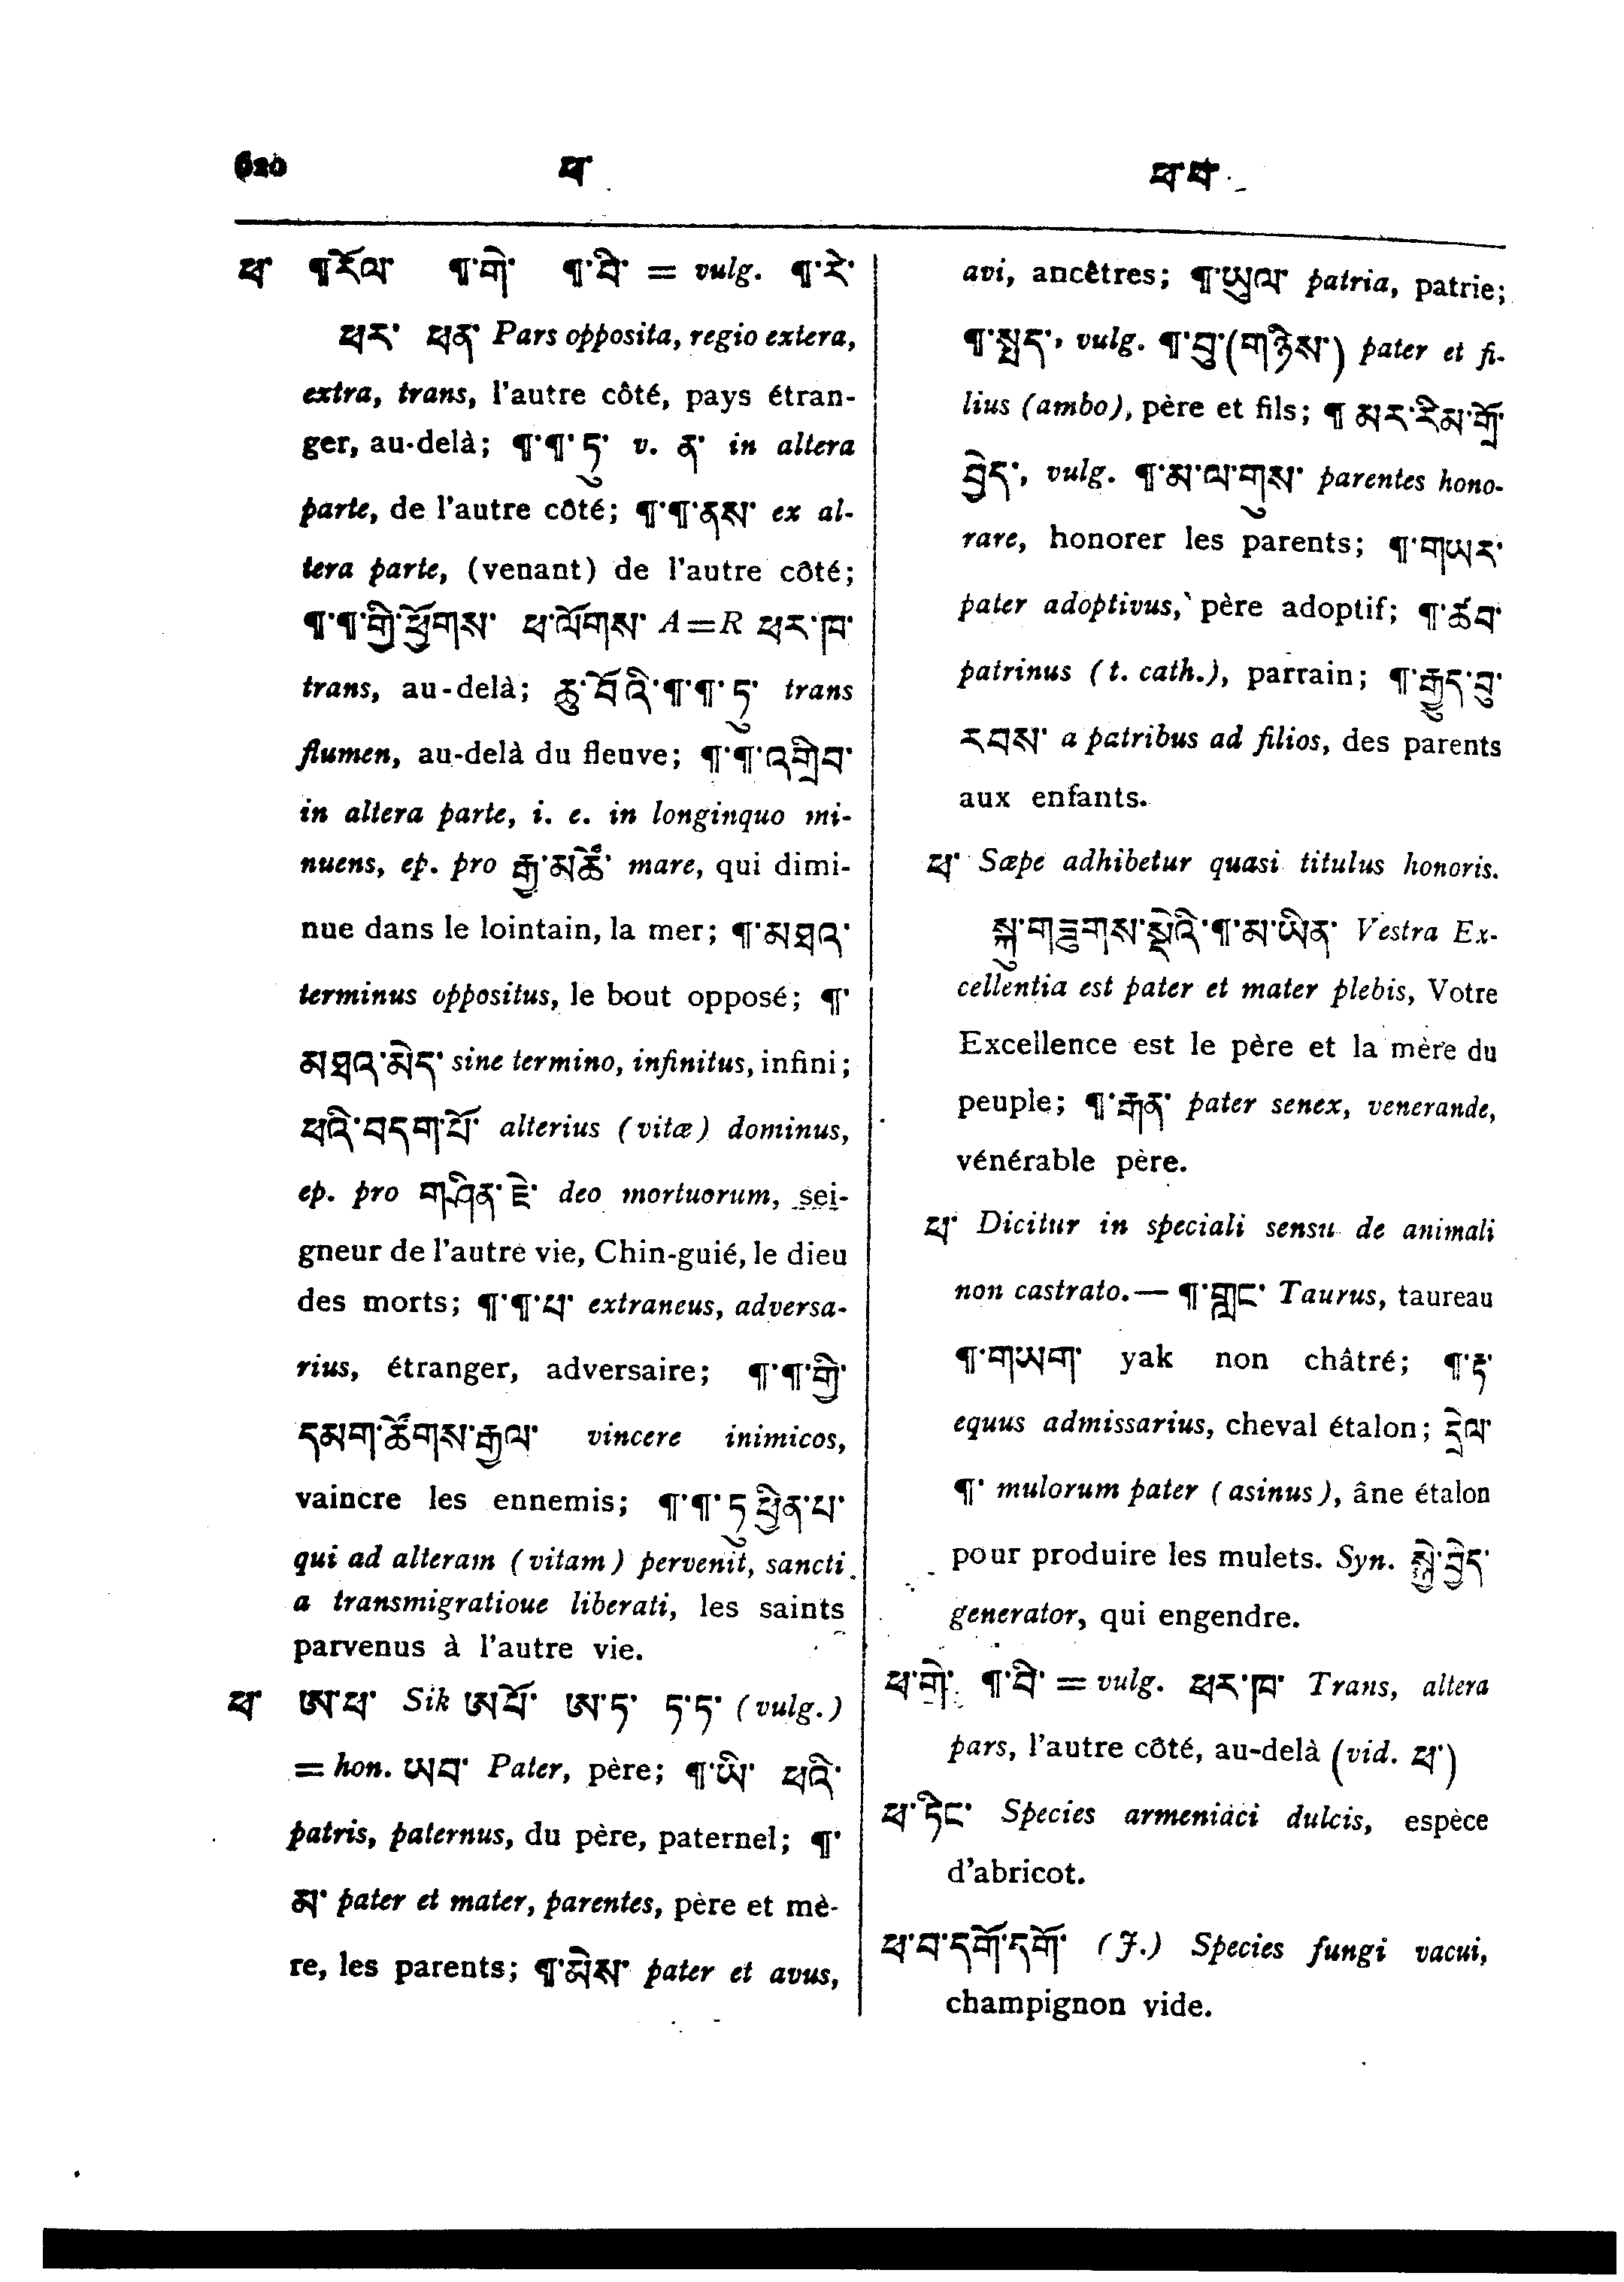 620 ཕ་ ཕ་བ་
ཕ་ ¶་རོལ་ ¶་གེ་ ¶་བི་ = vulg. ¶་རེ་
ཕར་ ཕན་ Pars opposita, regio extera,
extra, trans, l'autre côté, pays étran-
ger, au-delà; ¶་¶་ཏུ་ v. ན་ in altera
parte, de l'autre côté; ¶་¶་ནས་ ex al-
tera parte, (venant) de l'autre côté;
¶་¶་གྱི་ཕྱོགས་ ཕ་ལོགས་ A=R ཕར་ཁ་
trans, au-delà; ཆུ་བོའི་¶་¶་ཏུ་ trans
flumen, au-delà du fleuve; ¶་¶་འགྲིབ་
in altera parte, i. e. in longinquo mi-
nuens, ep. pro རྒྱ་མཚོ་ mare, qui dimi-
nue dans le lointain, la mer; ¶་མཐའ་
terminus oppositus, le bout opposé; ¶་
མཐའ་མེད་ sine termino, infinitus, infini;
ཕའི་བདག་པོ་ alterius (vitæ) dominus,
ep. pro གཤིན་རྗེ་ deo mortuorum, sei-
gneur de l'autre vie, Chin-guié, le dieu
des morts; ¶་¶་པ་ extraneus, adversa-
rius, étranger, adversaire; ¶་¶་གྱི་
དམག་ཚོགས་རྒྱལ་ vincere inimicos,
vaincre les ennemis; ¶་¶་ཏུ་ཕྱིན་པ་
qui ad alteram (vitam) pervenit, sancti
a transmigratioue liberati, les saints
parvenus à l'autre vie.
ཕ་ ཨ་ཕ་ Sik ཨ་པོ་ ཨ་ད་ ད་ད་ (vulg.)
= hon. ཡབ་ Pater, père; ¶་ཡི་ ཕའི་
patris, paternus, du père, paternel; ¶་
མ་ pater et mater, parentes, père et mè-
re, les parents; ¶་མེས་ pater et avus,
avi, ancêtres; ¶་ཡུལ་ patria, patrie;
¶་སྤད་, vulg. ¶་བུ་(གཉིས་) pater et fi-
lius (ambo), père et fils; ¶ མར་རིམ་གྲོ་
བྱེད་, vulg. ¶་མ་ལ་གུས་ parentes hono-
rare, honorer les parents; ¶་གཡར་
pater adoptivus, père adoptif; ¶་ཚབ་
patrinus (t. cath.), parrain; ¶་རྒྱུད་བུ་
རབས་ a patribus ad filios, des parents
aux enfants.
ཕ་ Sæpe adhibetur quasi titulus honoris.
སྐུ་གཟུགས་སྡེའི་¶་མ་ཡིན་ Vestra Ex-
cellentia est pater et mater plebis, Votre
Excellence est le père et la mère du
peuple; ¶་རྒན་ pater senex, venerande,
vénérable père.
ཕ་ Dicitur in speciali sensu de animali
non castrato.— ¶་གླང་ Taurus, taureau
¶་གཡག་ yak non châtré; ¶་རྟ་
equus admissarius, cheval étalon; དྲེལ་
¶་ mulorum pater (asinus), âne étalon
pour produire les mulets. Syn. སྐྱེ་བྱེད་
generator, qui engendre.
ཕ་གེ་ ¶་བི་ = vulg. ཕར་ཁ་ Trans, altera
pars, l'autre côté, au-delà (vid. ཕ་)
ཕ་ཏིང་ Species armeniaci dulcis, espèce
d'abricot.
ཕ་བ་དགོ་དགོ་ (J.) Species fungi vacui,
champignon vide.